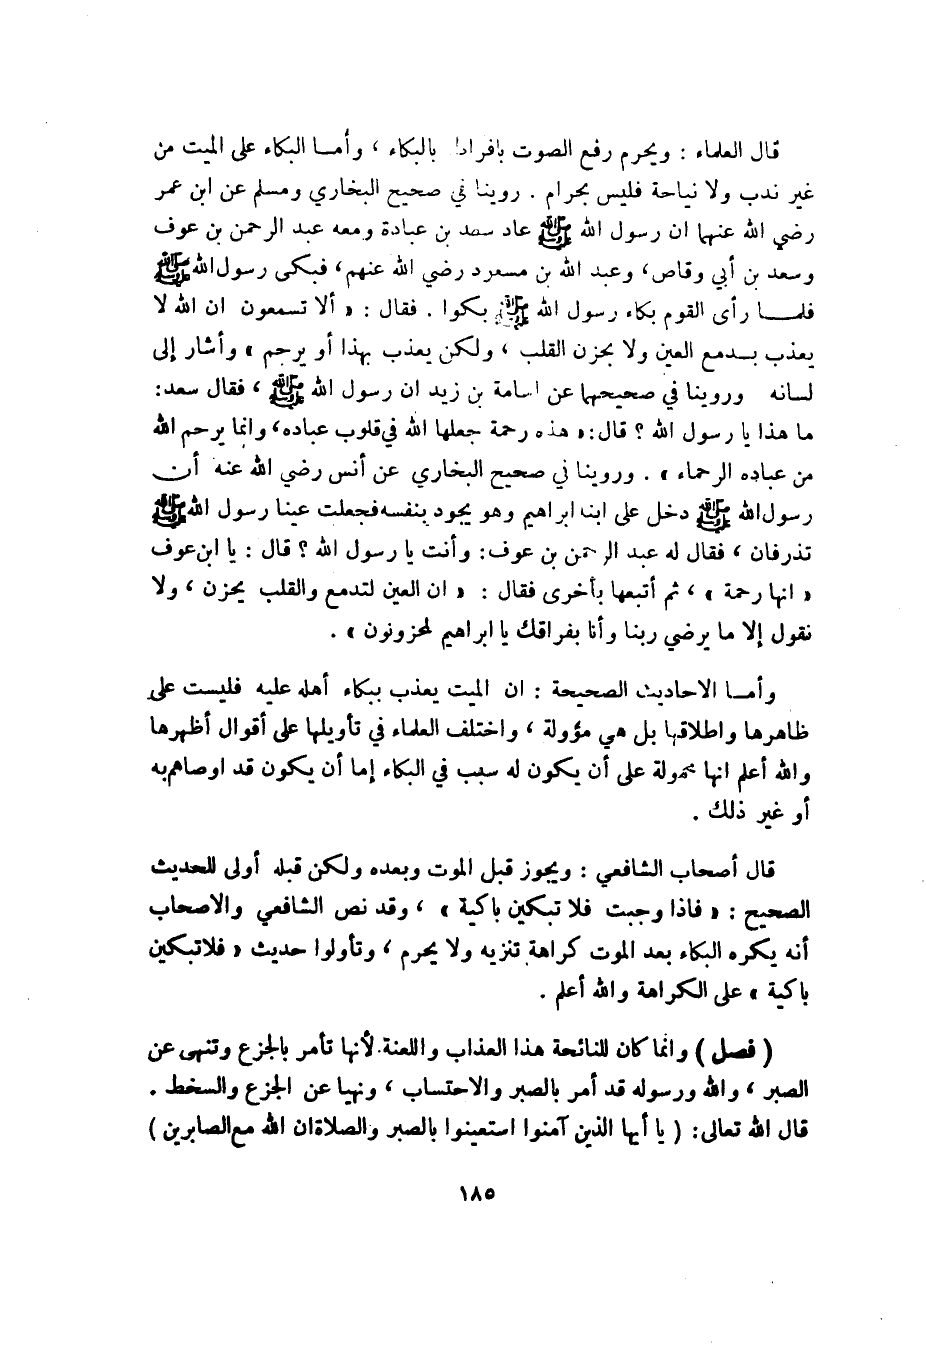 قال العلماء : ويحرم رفع الصوت بافراط بالبكاء ، وأمــا البكاء على الميت من
غير ندب ولا نياحة فليس بحرام . روينا في صحيح البخاري ومسلم عن ابن عمر
رضي الله عنهما ان رسول الله ﷺ عاد سعد بن عبادة ومعه عبد الرحمن بن عوف
وسعد بن أبي وقاص، وعبد الله بن مسعود رضي الله عنهم، فبكى رسول الله ﷺ
فلمــا رأى القوم بكاء رسول الله ﷺ بكوا . فقال : « ألا تسمعون ان الله لا
يعذب بــدمع العين ولا بحزن القلب ، ولكن يعذب بهذا أو يرحم » وأشار إلى
لسانه وروينا في صحيحهما عن اسامة بن زيد ان رسول الله ﷺ ، فقال سعد:
ما هذا يا رسول الله ؟ قال:« هذه رحمة جعلها الله في قلوب عباده، وانما يرحم الله
من عباده الرحماء » . وروينا في صحيح البخاري عن أنس رضي الله عنه أن
رسول الله ﷺ دخل على ابنه ابراهيم وهو يجود بنفسه فجعلت عينا رسول الله ﷺ
تذرفان ، فقال له عبد الرحمن بن عوف: وأنت يا رسول الله ؟ قال : يا ابن عوف
« انها رحمة » ، ثم أتبعها بأخرى فقال : « ان العين لتدمع والقلب يحزن ، ولا
نقول إلا ما يرضي ربنا وأنا بفراقك يا ابراهيم لمحزونون » .
وأمــا الاحاديث الصحيحة : ان الميت يعذب ببكاء أهله عليه فليست على
ظاهرها واطلاقها بل هي مؤولة ، واختلف العلماء في تأويلها على أقوال أظهرها
والله أعلم انها محمولة على أن يكون له سبب في البكاء إما أن يكون قد اوصاهم به
أو غير ذلك .
قال أصحاب الشافعي : ويجوز قبل الموت وبعده ولكن قبله أولى للحديث
الصحيح : « فاذا وجبت فلا تبكين باكية » ، وقد نص الشافعي والاصحاب
أنه يكره البكاء بعد الموت كراهة تنزيه ولا يحرم ، وتأولوا حديث « فلا تبكين
باكية » على الكراهة والله أعلم .
( فصل ) وانما كان للنائحة هذا العذاب واللعنة لأنها تأمر بالجزع وتنهى عن
الصبر ، والله ورسوله قد أمر بالصبر والاحتساب ، ونهيا عن الجزع والسخط .
قال الله تعالى: ( يا أيها الذين آمنوا استعينوا بالصبر والصلاة ان الله مع الصابرين )
١٨٥